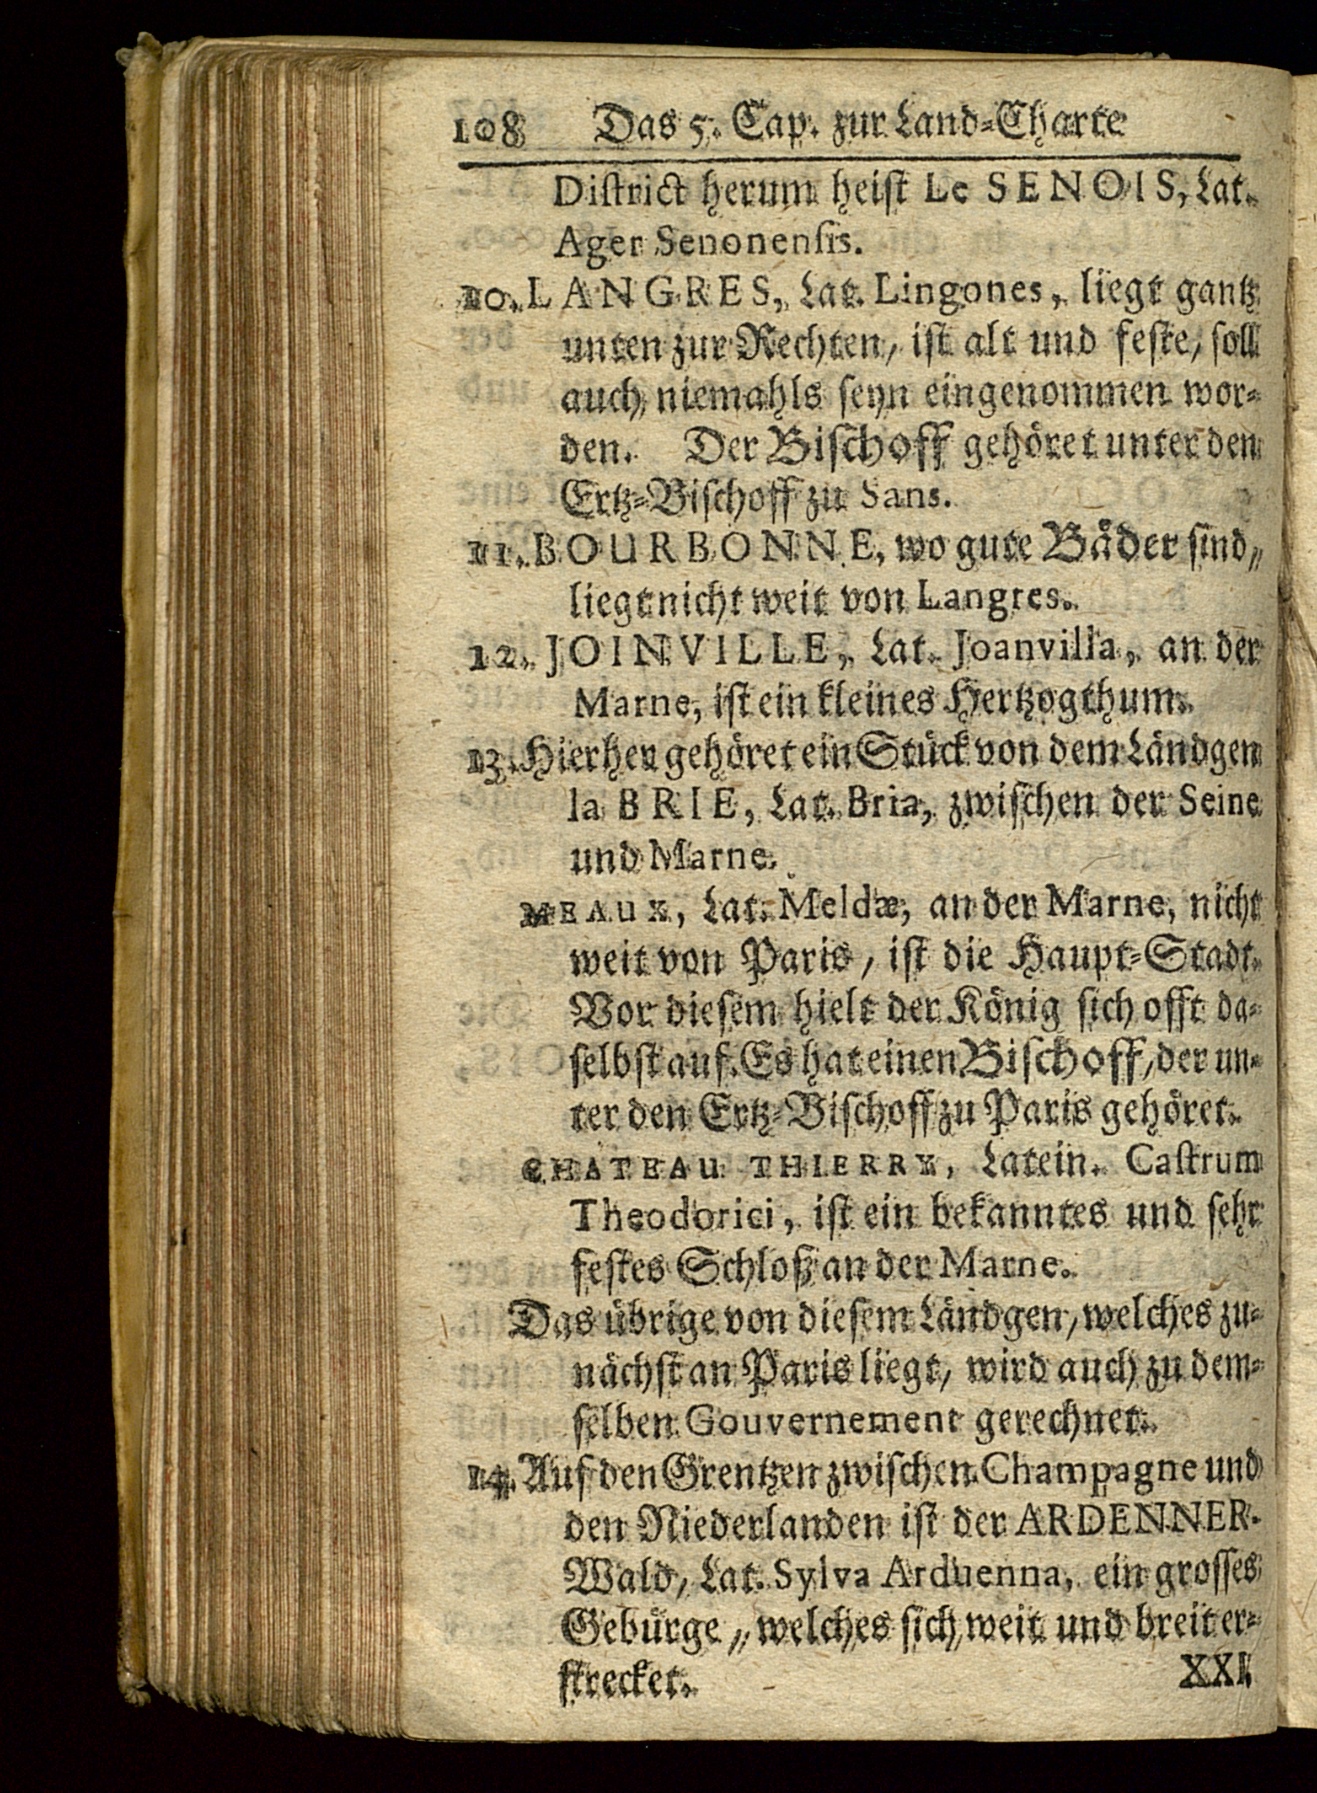 108 Das 5. Cap. zur Land-Charte
District herum heist Le SENOIS, Lat.
Ager Senonensis.
10. LANGRES, Lat. Lingones, liegt gantz
unten zur Rechten, ist alt und feste, soll
auch niemahls seyn eingenommen wor-
den. Der Bischoff gehöret unter den
Ertz-Bischoff zu Sans.
11. BOURBONNE, wo gute Bäder sind,
liegt nicht weit von Langres.
12. JOINVILLE, Lat. Joanvilla, an der
Marne, ist ein kleines Hertzogthum.
13. Hierher gehöret ein Stück von dem Ländgen
la BRIE, Lat. Bria, zwischen der Seine
und Marne.
MEAUX, Lat. Meldæ, an der Marne, nicht
weit von Paris, ist die Haupt-Stadt.
Vor diesem hielt der König sich offt da-
selbst auf. Es hat einen Bischoff, der un-
ter den Ertz-Bischoff zu Paris gehöret.
CHATEAU THIERRY, Latein. Castrum
Theodorici, ist ein bekanntes und sehr
festes Schloß an der Marne.
Das übrige von diesem Ländgen, welches zu-
nächst an Paris liegt, wird auch zu dem-
selben Gouvernement gerechnet.
14. Auf den Grentzen zwischen Champagne und
den Niederlanden ist der ARDENNER-
Wald, Lat. Sylva Arduenna, ein grosses
Gebürge, welches sich weit und breit er-
strecket. XXI.